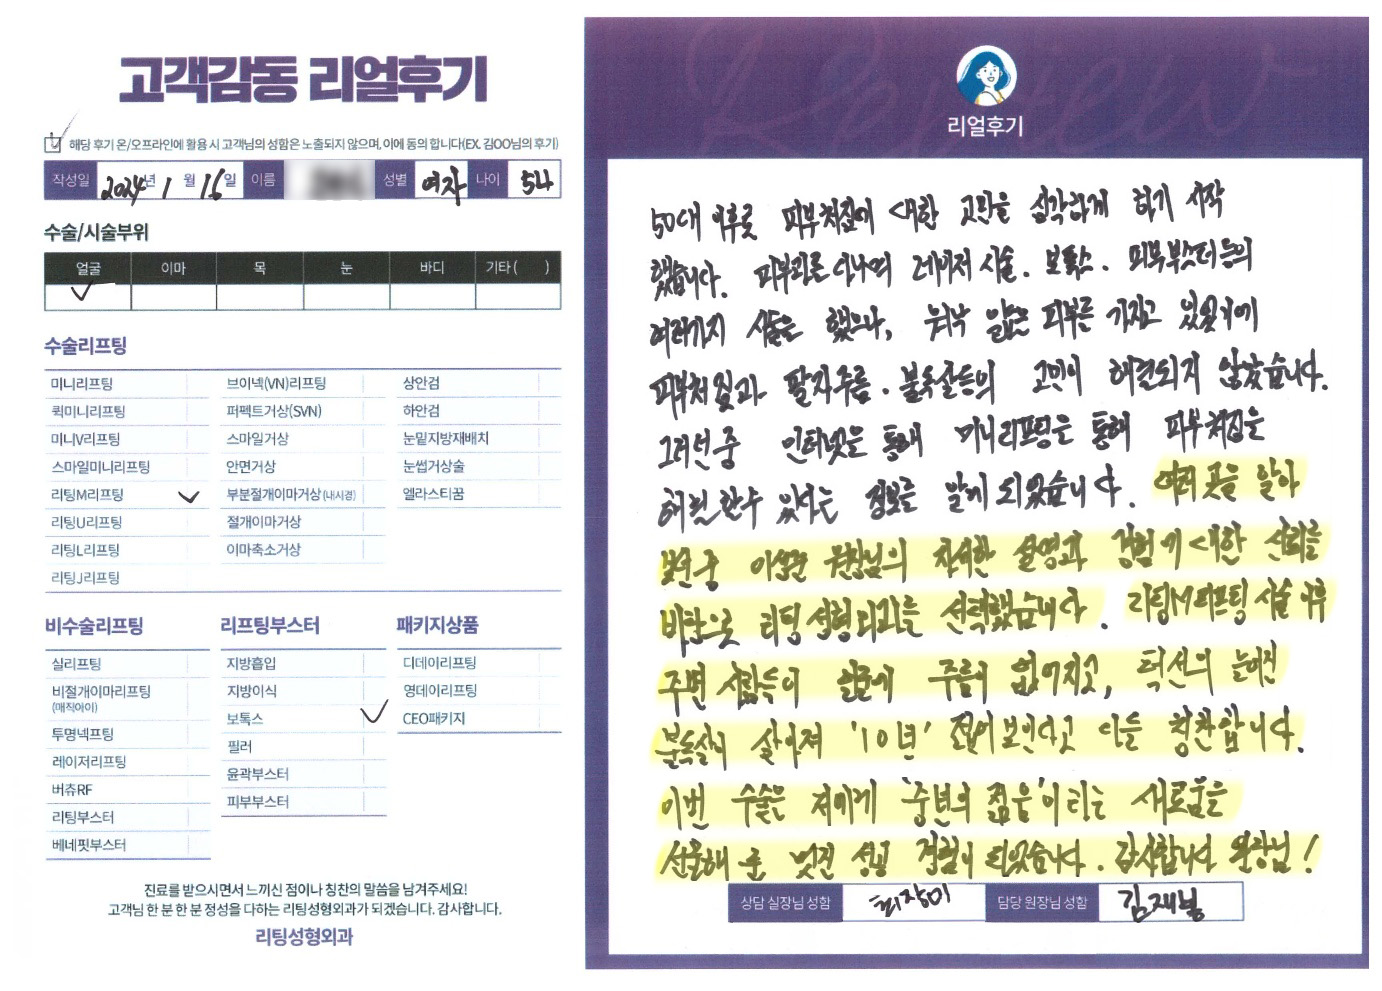 고객감동 리얼후기
해당 후기 온/오프라인에 활용 시 고객님의 성함은 노출되지 않으며, 이에 동의 합니다(EX. 김OO님의 후기)
작성일 2024년 1월 16일 이름 성별 여자 나이 54
수술/시술부위
얼굴 이마 목 눈 바디 기타( )
수술리프팅
미니리프팅 브이넥(VN)리프팅 상안검
퀵미니리프팅 퍼펙트거상(SVN) 하안검
미니V리프팅 스마일거상 눈밑지방재배치
스마일미니리프팅 안면거상 눈썹거상술
리팅M리프팅 부분절개이마거상(내시경) 엘라스티꿈
리팅U리프팅 절개이마거상
리팅L리프팅 이마축소거상
리팅J리프팅
비수술리프팅 리프팅부스터 패키지상품
실리프팅 지방흡입 디데이리프팅
비절개이마리프팅 지방이식 영데이리프팅
(매직아이)
투명넥프팅 보톡스 CEO패키지
레이저리프팅 필러
버츄RF 윤곽부스터
리팅부스터 피부부스터
베네핏부스터
진료를 받으시면서 느끼신 점이나 칭찬의 말씀을 남겨주세요!
고객님 한 분 한 분 정성을 다하는 리팅성형외과가 되겠습니다. 감사합니다.
리팅성형외과
Review
리얼후기
50대 이후로 피부쳐짐에 대한 고민을 심각하게 하기 시작
했습니다. 피부과를 다니며 레이저 시술. 보톡스. 피부부스터등의
여러가지 시술을 했으나, 워낙 얇은 피부를 가지고 있었기에
피부쳐짐과 팔자주름. 불독살등의 고민이 해결되지 않았습니다.
그러던 중 인터넷을 통해 미니리프팅을 통해 피부쳐짐을
해결할수 있다는 정보를 알게 되었습니다. 여러 곳을 알아
보던 중 원장님의 자세한 설명과 경험에 대한 신뢰를
바탕으로 리팅성형외과를 선택했습니다. 리팅M리프팅 시술 이후
주변 사람들이 얼굴에 주름이 없어지고, 턱선의 늘어진
불독살이 사라져 '10년' 젊어보인다고 다들 칭찬합니다.
이번 수술은 저에게 '중년의 젊음'이라는 새로움을
선물해 준 멋진 성공 경험이 되었습니다. 감사합니다 원장님!
상담 실장님 성함 최장미 담당 원장님 성함 김재봉